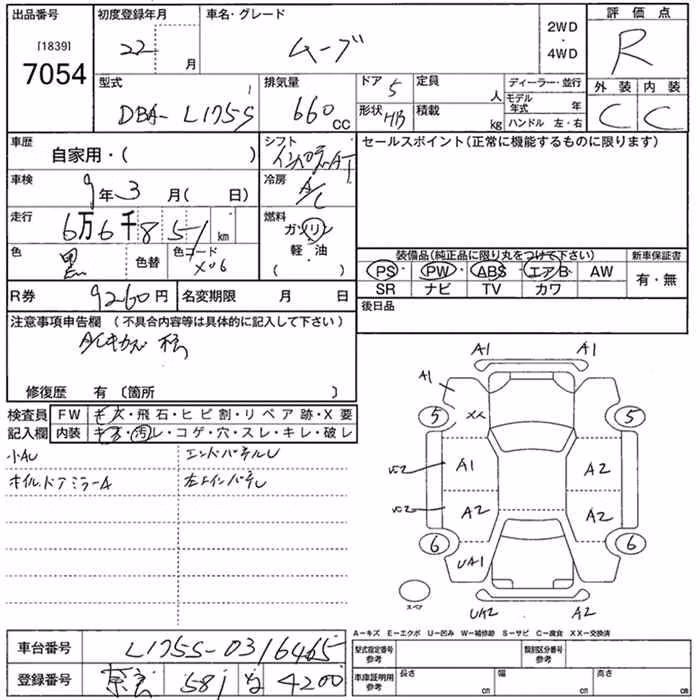 出品番号 初度登録年月 車名・グレード 評価点
[1839] 22 月 ムーブ 2WD ・ 4WD R
7054
型式 排気量 ドア 5 定員 人 ディーラー・並行 外装 内装
DBA- L175S 660 cc 形状 HB 積載 kg モデル年式 年 C C
ハンドル 左・右
車歴 自家用・( ) シフト インパネAT セールスポイント(正常に機能するものに限ります)
車検 9年 3 月( 日) 冷房 A/C
走行 6万6千851 km 燃料 ガソリン
軽・油
( )
色 黒 色替 色コード X06 装備品(純正品に限り丸をつけて下さい) 新車保証書
PS・PW・ABS・エアB・AW 有・無
R券 9260円 名変期限 月 日 SR ナビ TV カワ
注意事項申告欄(不具合内容等は具体的に記入して下さい) 後日品
修復歴 有〔箇所 〕
検査員 FW キズ・飛石・ヒビ割・リペア跡・X要
記入欄 内装 キズ・汚レ・コゲ・穴・スレ・キレ・破レ
小AU エンドパネルU
左.右ドアミラーA 左よインパネU
A1 A1
A1
5 XX 5
A1 A2
A2 A2
6 6
UA1
スペア
UA2 A2
A−キズ E−エクボ U−凹み W−補修跡 S−サビ C−腐食 XX−交換済
車台番号 L175S-0316465 型式指定番号 参考 類別区分番号 参考
登録番号 奈良 581 4200 車庫証明用 参考 長さ cm 幅 cm 高さ cm